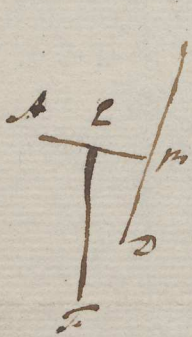 A C
m
D
F